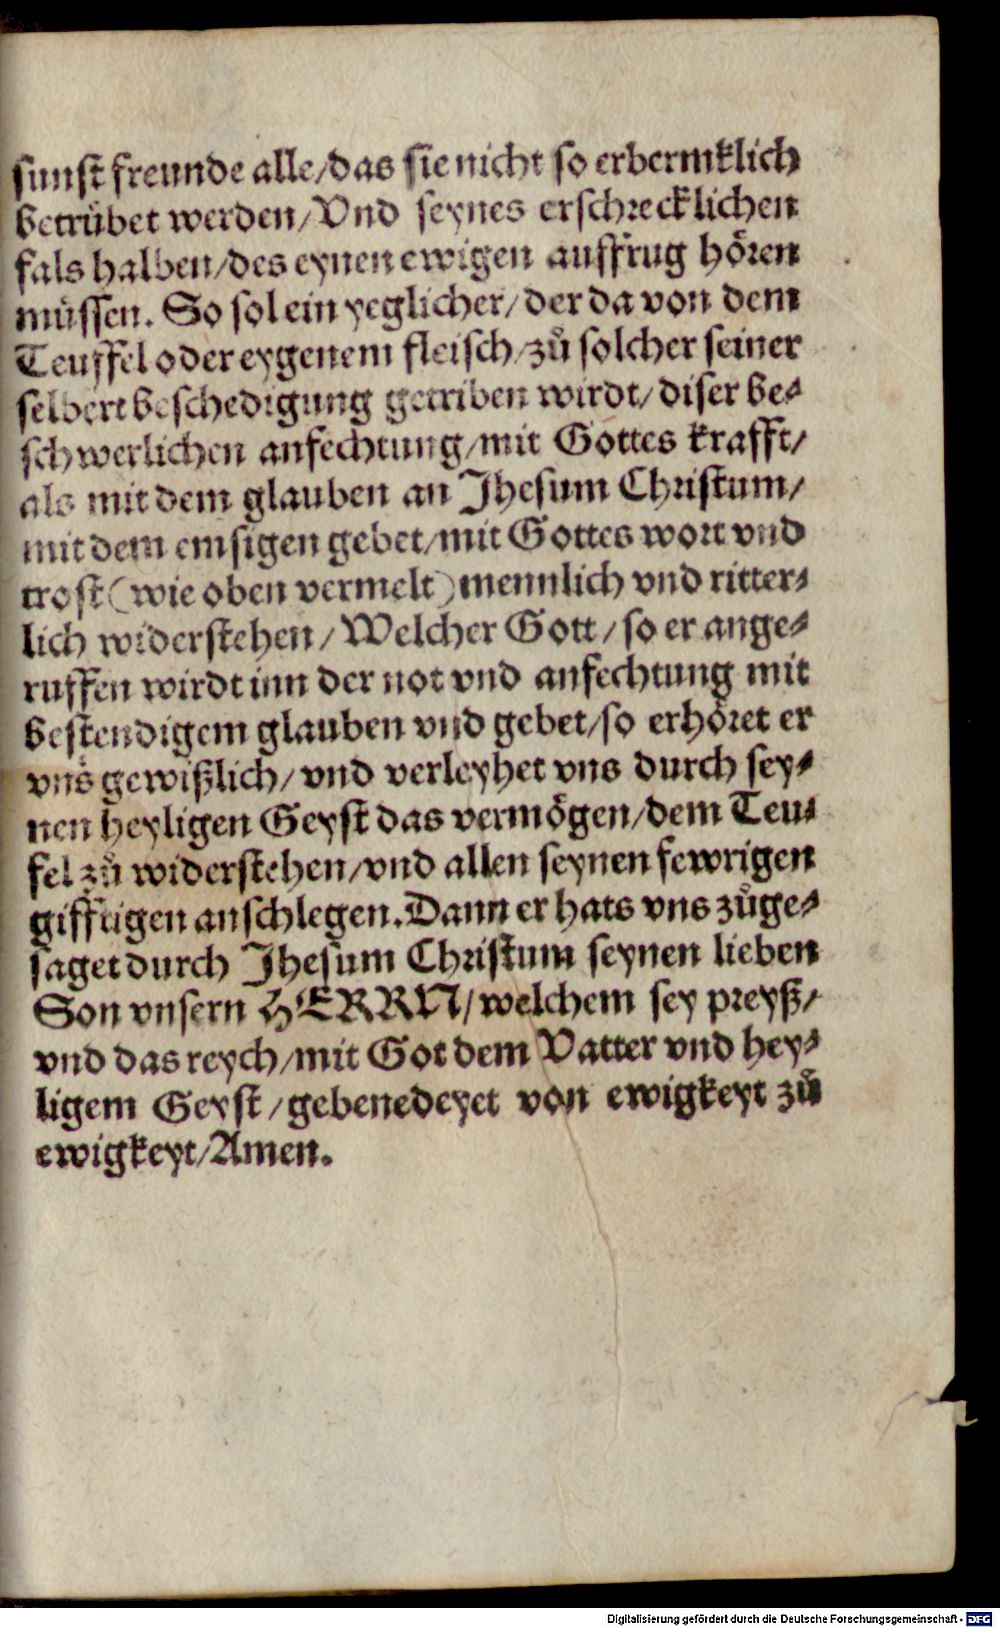 sunst freunde alle/das sie nicht so erbermklich
betrübet werden/Vnd seynes erschrecklichen
fals halben/des eynen ewigen auffrug hören
müssen. So sol ein yeglicher/der da von dem
Teuffel oder eygenem fleisch/zů solcher seiner
selbert beschedigung getriben wirdt/diser be⸗
schwerlichen anfechtung/mit Gottes krafft/
als mit dem glauben an Jhesum Christum/
mit dem emsigen gebet/mit Gottes wort vnd
trost (wie oben vermelt) mennlich vnd ritter⸗
lich widerstehen/Welcher Gott/so er ange⸗
ruffen wirdt inn der not vnd anfechtung mit
bestendigem glauben vnd gebet/so erhöret er
vns gewißlich/vnd verleyhet vns durch sey⸗
nen heyligen Geyst das vermögen/dem Teu⸗
fel zů widerstehen/vnd allen seynen fewrigen
gifftigen anschlegen. Dann er hats vns zůge⸗
saget durch Jhesum Christum seynen lieben
Son vnsern HERRN/welchem sey preyß/
vnd das reych/mit Got dem Vatter vnd hey⸗
ligem Geyst/gebenedeyet von ewigkeyt zů
ewigkeyt/Amen.
Digitalisierung gefördert durch die Deutsche Forschungsgemeinschaft - DFG